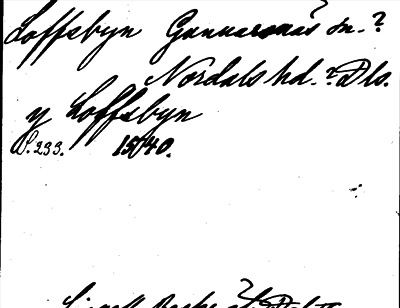 Loffsbyn Gunnarsnäs sn.?
Nordals hd.? Dls.
y Loffsbyn
S. 233. 1540.